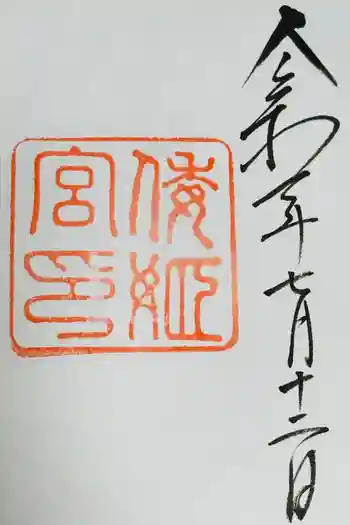 令和元年七月十二日
倭姫
宮印